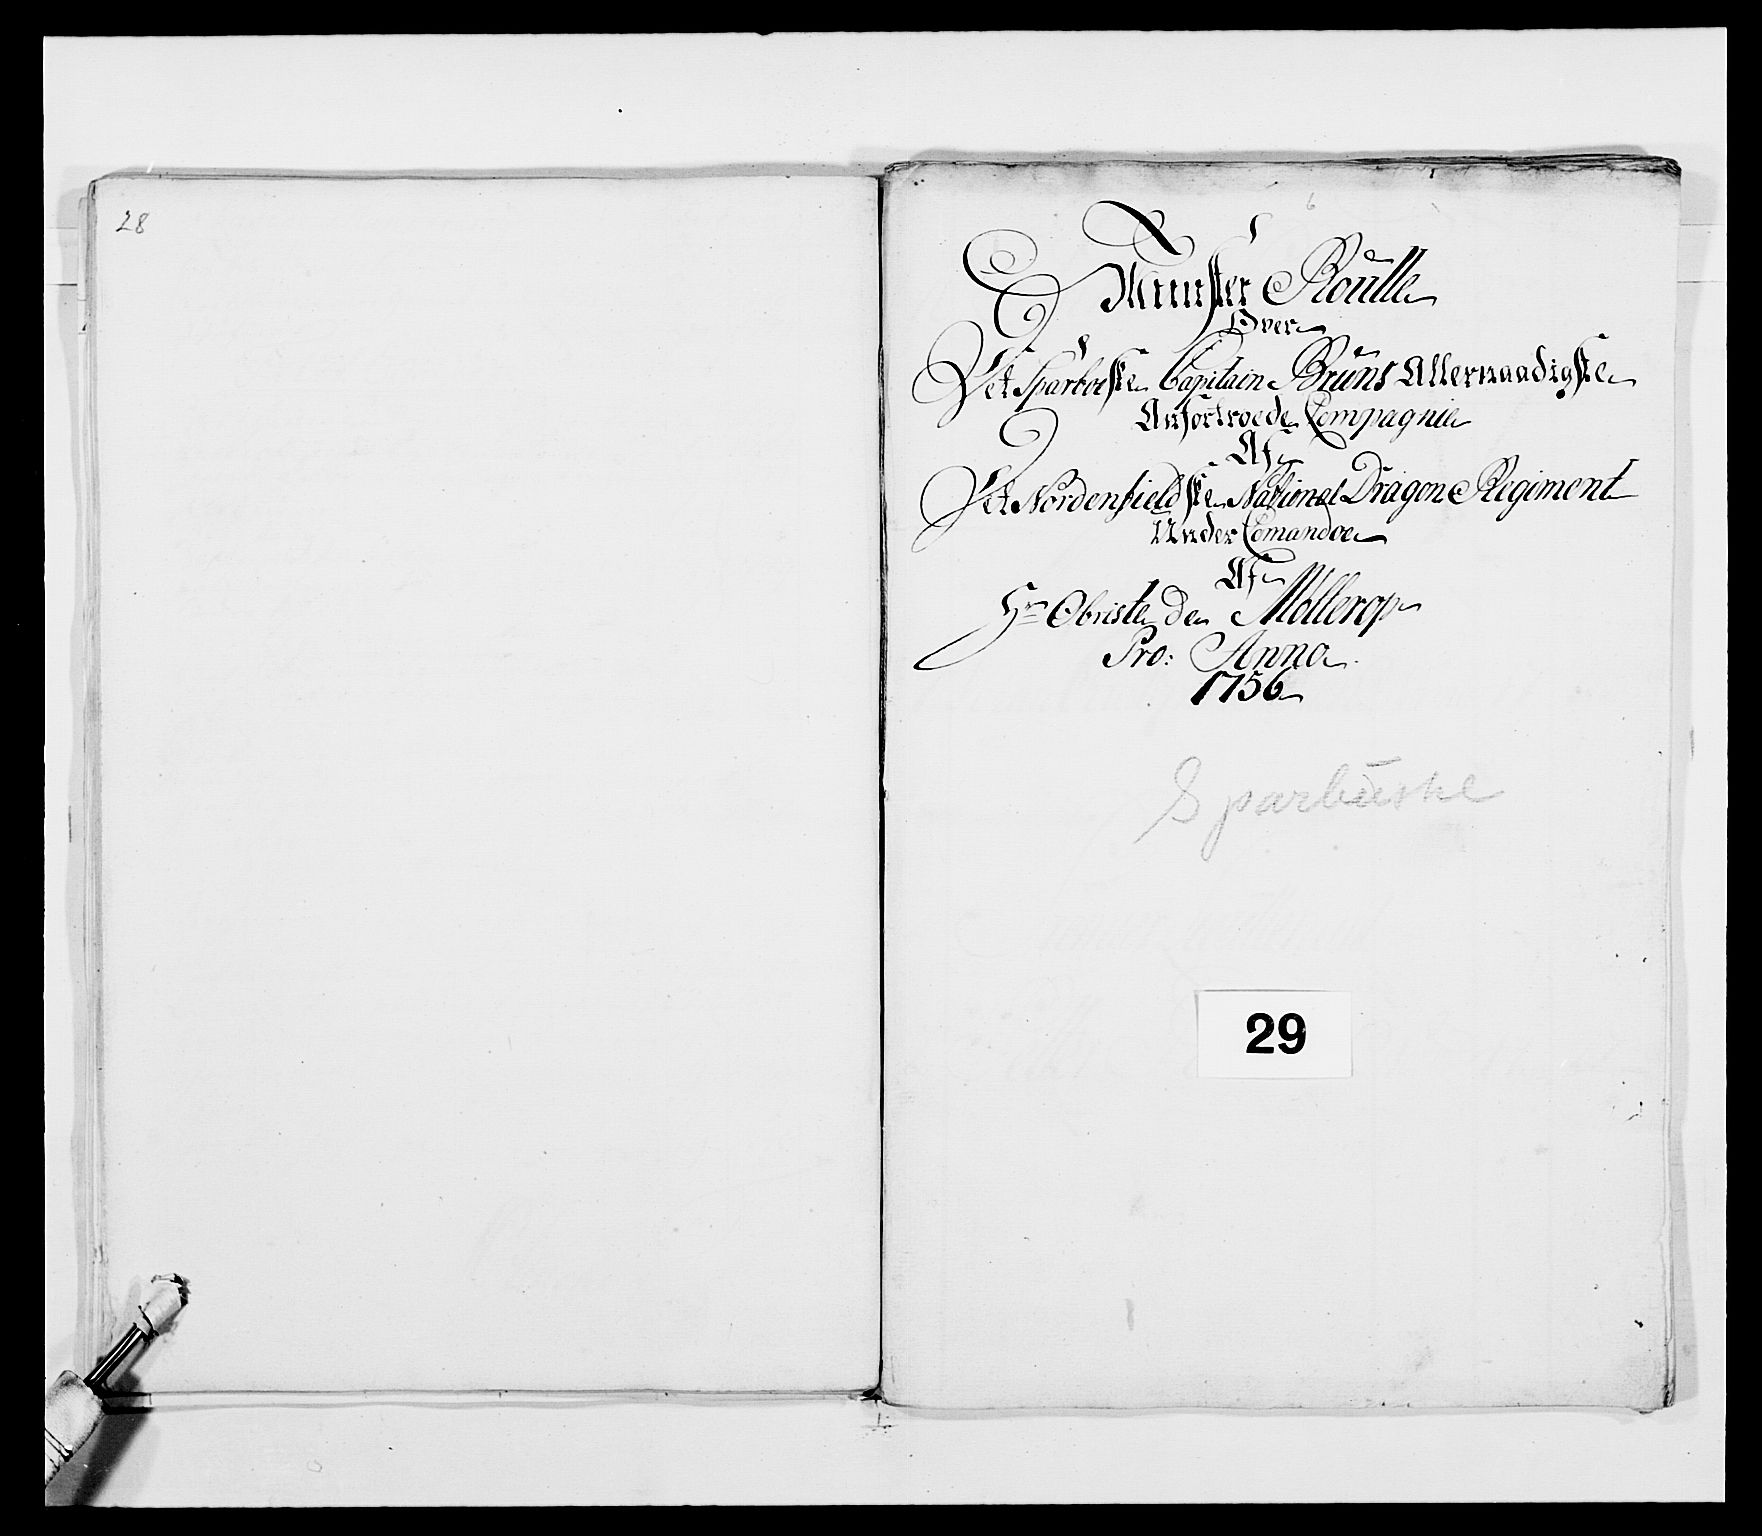 28
6
Munster Roulle
Over
Det Sparboeske Capitain Bruns Allernaadigste
Anfortroede Compagnie
Af
Det Nordenfieldske National Dragon Regiment
Under Comandoe
Af
Hr Obriste de Möllerop
Pro: Anno
1756
Sparbuske
29